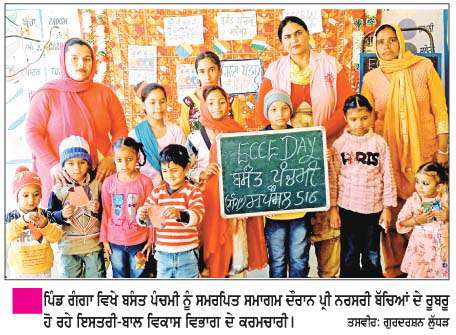 ECCE DAY
ਬਸੰਤ ਪੰਚਮੀ
516
PARIS
ਪਿੰਡ ਗੰਗਾ ਵਿਖੇ ਬਸੰਤ ਪੰਚਮੀ ਨੂੰ ਸਮਰਪਿਤ ਸਮਾਗਮ ਦੌਰਾਨ ਪ੍ਰੀ ਨਰਸਰੀ ਬੱਚਿਆਂ ਦੇ ਰੂਬਰੂ
ਹੋ ਰਹੇ ਇਸਤਰੀ-ਬਾਲ ਵਿਕਾਸ ਵਿਭਾਗ ਦੇ ਕਰਮਚਾਰੀ। ਤਸਵੀਰ: ਗੁਰਦਰਸ਼ਨ ਲੁੱਧੜ